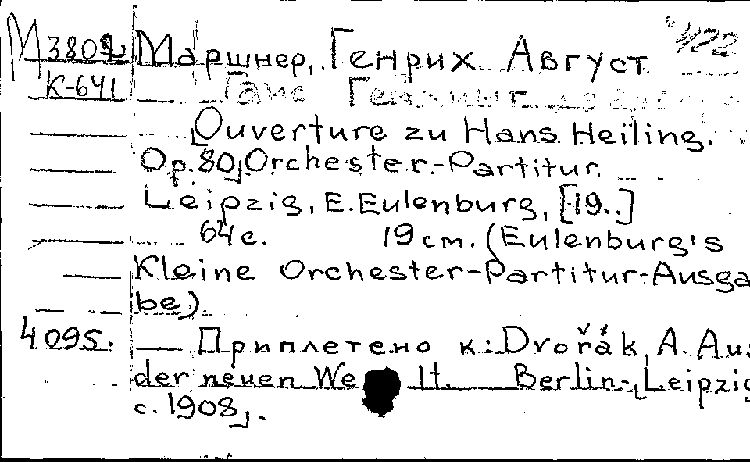 М3802 Маршнер, Генрих Август
К-641 Ганс
[Ouverture zu Hans Heiling.
Op.80] Orchester-Partitur.
Leipzig, E. Eulenburg, [19..]
64 с. 19 см. (Eulenburg's
Kleine Orchester-Partitur-Ausga
be).
4095. — Приплетено к: Dvořák, A. Aus
der neuen Welt. Berlin-[Leipzig
с. 1908].